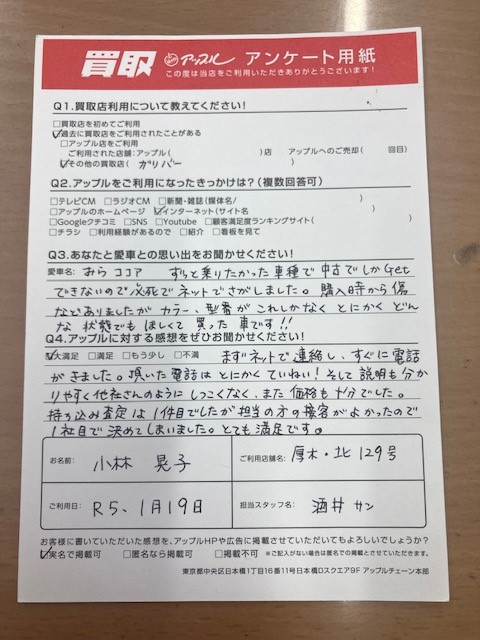 買取 アップル アンケート用紙
この度は当店をご利用いただきありがとうございます!
Q1.買取店利用について教えてください!
□買取店を初めてご利用
☑過去に買取店をご利用されたことがある
□アップル店をご利用
ご利用された店舗:アップル( )店 アップルへのご売却( 回目)
☑その他の買取店( ガリバー )
Q2.アップルをご利用になったきっかけは?(複数回答可)
□テレビCM □ラジオCM □新聞・雑誌(媒体名/ )
□アップルのホームページ ☑インターネット(サイト名 )
□Googleクチコミ □SNS □Youtube □顧客満足度ランキングサイト( )
□チラシ □利用経験があるので □紹介 □看板を見て
Q3.あなたと愛車との思い出をお聞かせください!
愛車名: みらココア ずっと乗りたかった車種で中古でしかGet
できないので必死でネットでさがしました。購入時から傷
などありましたがカラー、型番がこれしかなくとにかくどん
な状態でもほしくて買った車です!!
Q4.アップルに対する感想をぜひお聞かせください!
☑大満足 □満足 □もう少し □不満 まずネットで連絡し、すぐに電話
がきました。頂いた電話はとにかくていねい!そして説明も分か
りやすく他社さんのようにしつこくなく、また価格も十分でした。
持ち込み査定は1件目でしたが担当の方の接客がよかったので
1社目で決めてしまいました。とても満足です。
お名前: 小林 晃子
ご利用店舗名: 厚木・北129号
ご利用日: R5、1月19日
担当スタッフ名: 酒井サン
お客様に書いていただいた感想を、アップルHPや広告に掲載させていただいてもよろしいでしょうか?
☑実名で掲載可 □匿名なら掲載可 □掲載不可 ※ご記入がない場合は匿名での掲載とさせていただきます。
東京都中央区日本橋1丁目16番11号日本橋Dスクエア9F アップルチェーン本部